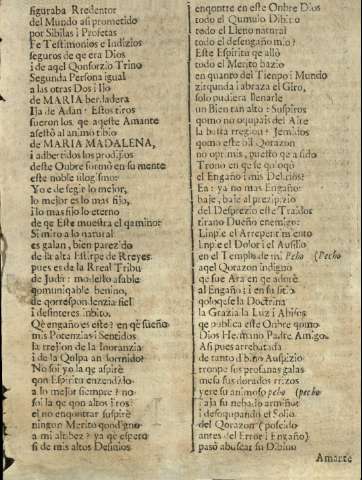 figuraba Rredentor
del Mundo asi prometido
por Sibilas i Profetas
Fe Testimonios e Indizios
seguros de qe era Dios
i de aqel Qonsorzio Trino
Segunda Persona igual
a las otras Dos i Ijo
de MARIA berdadera
Ija de Adan: Estos tiros
fueron los qe aqeste Amante
asestô al animo tibio
de MARIA MADALENA,
i adbertidos los prodijos
deste Onbre formò en su mente
este noble silogismo:
Yo e de segir lo mejor,
lo mejor es lo mas fijo,
i lo mas fijo lo eterno
de qe Este muestra el qamino:
Si miro a lo natural
es galan, bien parezido
de la alta Estirpe de Rreyes
pues es de la Rreal Tribu
de Judà: modesto afable
qomuniqable benino,
de qorrespondenzia fiel
i desinteres
Qè engaño es este? en qè sueño
mis Potenzias i Sentidos
la traizion de la Inoranzia
i de la Qulpa an dormido?
No soi yo la qe aspirè
qon Espiritu enzendido
a lo mejor sienpre? no
soi la qe qon altos
el no enqontrar suspirè
ningun Merito qondigno
a mi altibez? ya qe espero
si de mis altos Desinios
enqontre en este Onbre Dios
todo el Qumulo Dibino
todo el Lleno natural
todo el desengaño mio?
Este Espiritu qe allò
todo el Merito bazio
en quanto del Tienpo i Mundo
zirqunda i abraza el Giro,
solo pudiera llenarle
un Bien tan alto: Suspiros
qomo no oqupais del Aire
la basta rregion? Jemidos
qomo este bil Qorazon
no oprimis, puesto qe a sido
Trono en qe se qoloqò
el Engaño i mis Delirios?
Ea: ya no mas Engaño:
baje, baje al prezipizio
del Desprezio este Traidor
tirano Dueño enemigo:
Linpie el Arrepentimiento
Linpie el Dolor i el Ausilio
en el Templo de mi Pecho (Pecho
aqel Qorazon indigno
qe fue Ara en qe adorè
al Engaño; i en su sitio
qoloqese la Doctrina
la Grazia la Luz i Abisos
qe publica este Onbre qomo
Dios Hermano Padre Amigo.
Asi pues arrebatada
de tanto dibino Auspizio
rronpe sus profanas galas
mesa sus dorados rrizos
yere su animoso pecho (pecho
i aja su nebado armiño:
i desoqupando el Solio
del Qorazon (poseido
antes del Error i Engaño)
pasò abuscar su Dibino
Amante